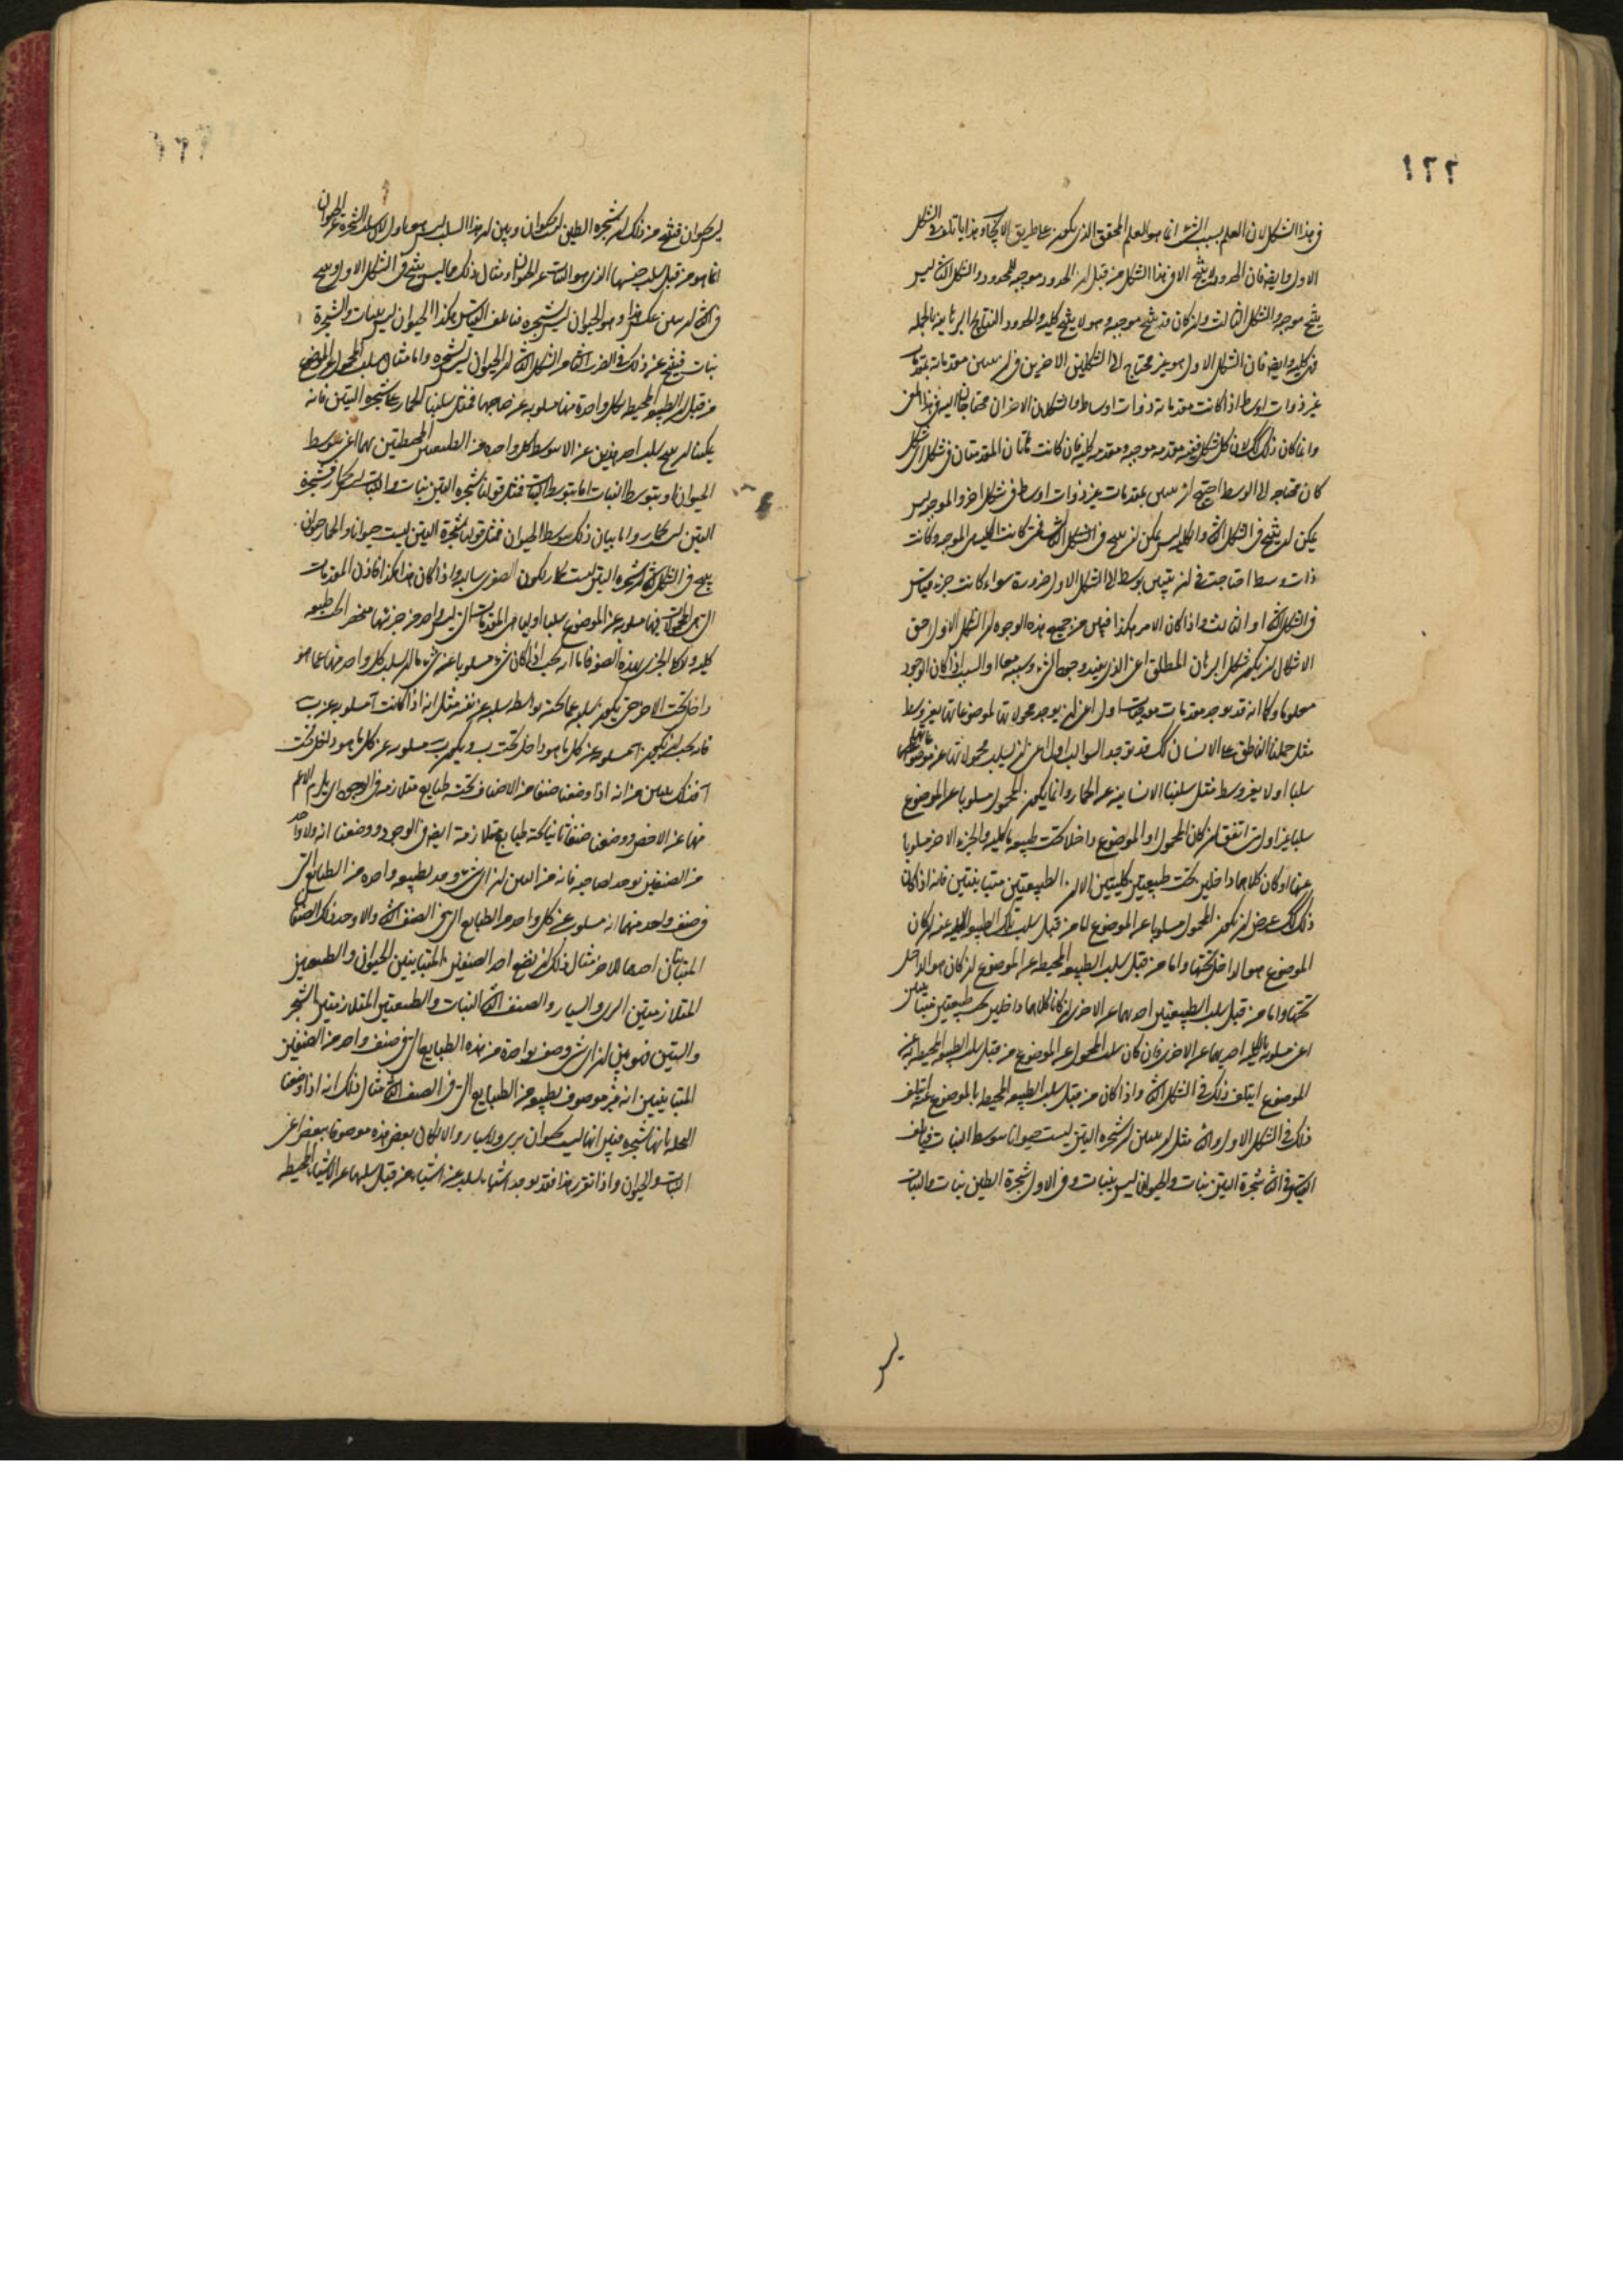 ١٢٢
فى هذا الشكل لان العلم بسبب الشئ انما هو العلم المحقق الذى يكون على طريق الايجاب وهذا يأتلف فى الشكل
الاول وايضا فان الحدود لا ينتج الا فى هذا الشكل من قبل ان الحدود موجبه للمحدود والشكل الثانى ليس
ينتج موجبه والشكل الثالث وان كان قد ينتج موجبه وهو لا ينتج كليه والحدود النتايج البرهانيه بالجمله
فى كليه وايضا فان الشكل الاول هو غير محتاج الى الشكلين الاخرين فى ان تبين مقدماته بمقدمات
غير ذوات اوساط اذا كانت مقدماته ذوات اوساط والشكلان الاخران محتاجان اليه فى هذا المعنى
وانما كان ذلك كذلك لان كل شكل ففيه مقدمه موجبه ومقدمه كليه فان كانت هاتان المقدمتان فى شكل شكل
كان محتاجه الى الوسط احتيج ان تبين بمقدمات غير ذوات اوساط فى شكل اخر والموجبه ليس
يمكن ان ينتج فى الشكل الثانى والكليه ليس يمكن ان تبين فى الشكل الثالث فمتى كانت الكليه او الموجبه وكانت
ذات وسط احتاجت فى ان يتبين بوسط الى الشكل الاول ضرورة سواء كانت جزء قياس
فى الشكل الثانى او الثالث واذا كان الامر هكذا فبين من جميع هذه الوجوه ان الشكل الاول احق
الاشكال ان يكون شكل البرهان المطلق اعنى الذى يفيد وجود الشئ وسببه معا او السبب اذا كان الوجود
معلوما وكما انه قد يوجد مقدمات موجبات اول اعنى ان يوجد محمولاتها لموضوعاتها بغير وسط
مثل حملنا الناطق على الانسان كذلك قد توجد السوالب اول اعنى ان يسلب محمولاتها عن موضوعاتها
سلبا اولا بغير وسط مثل سلبنا الانسانيه عن الحمار وانما يكون المحمول مسلوبا عن الموضوع
سلبا غير اول متى اتفق ان كان المحمول او الموضوع داخلا تحت طبيعه كليه والجزء الاخر مسلوبا
عنها او كان كلاهما داخلين تحت طبيعتين كليتين الا ان الطبيعتين متباينتين فانه اذا كان
ذلك كذلك عرض ان يكون المحمول مسلوبا عن الموضوع اما من قبل سلب تلك الطبيعه الكليه عنه ان كان
الموضوع هو الداخل تحتها واما من قبل سلب الطبيعه المحيطه عن الموضوع ان كان هو الداخل
تحتها واما من قبل سلب الطبيعتين احديهما عن الاخرى ان كانا كلاهما داخلين تحت طبيعتين متباينتين
اعنى مسلوبه بالكليه احديهما عن الاخرى فان كان سلب المحمول عن الموضوع من قبل سلب الطبيعه المحيطه به عنه
الموضوع ايتلف ذلك فى الشكل الثانى واذا كان من قبل سلب الطبيعه المحيطه بالموضوع عنه ايتلف
ذلك فى الشكل الاول والثانى مثل ان تبين ان شجره التين ليست حيوانا بتوسط النبات فياتلف
القياس فى الثانى شجرة التين نبات والحيوان ليس بنبات وفى الاول شجرة التين نبات والنبات
ليس
ليس بحيوان فينتج من ذلك ان شجره التين ليست بحيوان وبين ان هذا السلب ليس هو باول لان سلب الشجره عن الحيوان
انما هو من قبل سلب جنسها الذى هو النبات عن الحيوان ومثال ذلك مما ليس ينتج فى الشكل الاول وينتج
فى الثانى ان تبين عكس هذا وهو ان الحيوان ليس بشجره فيأتلف القياس هكذا الحيوان ليس بنبات والشجرة
نبات فينتج عن ذلك فى الضرب الثانى من الشكل الثانى ان الحيوان ليس بشجره واما مثال سلب المحمول عن الموضوع
من قبل ان الطبيعه المحيطه بكل واحدة منهما مسلوبه عن صاحبها فمثل سلبنا الحمار عن شجره التين فانه
يمكننا ان نبين سلب احد هذين عن الاخر بتوسط كل واحده من الطبيعتين المحيطتين بهما اعنى بتوسط
الحيوان او بتوسط النبات اما بتوسط النبات فمثل قولنا شجره التين نبات والنبات ليس بحمار فشجرة
التين ليس بحمار واما بيان ذلك بتوسط الحيوان فمثل قولنا شجرة التين ليست حيوانا والحمار حيوان
ينتج فى الشكل الثانى ان شجره التين ليست بحمار ويكون الصغرى سالبه واذا كان هذا هكذا فاذن المقدمات
التى المحمولات فيها مسلوبه عن الموضوع سلبا اوليا هى المقدمات التى ليس واحد من جزئيها منحصرا تحت طبيعه
كليه
داخل تحت الاخر حتى يكون سلبه عما تحته بواسطه سلبه عن نفسه مثل انه اذا كانت آ مسلوبه عن ب
فانه يجب ان يكون آ مسلوبه عن كل ما هو داخل تحت ب ويكون ب مسلوبه عن كل ما هو داخل تحت
آ فذلك يتبين من انه اذا وضعنا صنفا من الاصناف تحته طبايع متلازمه فى الوجود اى يلزم الاعم
منها عن الاخص ووضعنا صنفا ثانيا تحته طبايع متلازمة ايضا فى الوجود ووضعنا انه ولا واحد
من الصنفين يوجد لصاحبه فانه من البين ان اى شئ وجد لطبيعه واحده من الطبايع التى
فى صنف واحد منهما انه مسلوب عن كل واحد من الطبايع التى فى الصنف الثانى والا وجد ذلك الصنفان
المتباينان احدهما للاخر مثال ذلك ان نضع احد الصنفين المتباينين الحيوان والطبيعتين
المتلازمتين البرى والسيار والصنف الثانى النبات والطبيعتين المتلازمتين الشجر
والتين فهو بين ان اى شئ وصف بواحدة من هذه الطبايع التى فى صنف واحد من الصنفين
المتباينين انه غير موصوف بطبيعه من الطبايع التى فى الصنف الثانى مثال ذلك انه اذا وصفنا
النخله بانها شجره فبين انها ليست بحيوان برى ولا سيار والا لكان بعض هذه موصوفا ببعض اعنى
النبات والحيوان واذا تقرر هذا فقد يوجد اشياء تسلب عن اشياء من قبل سلبها عن الاشياء المحيطه